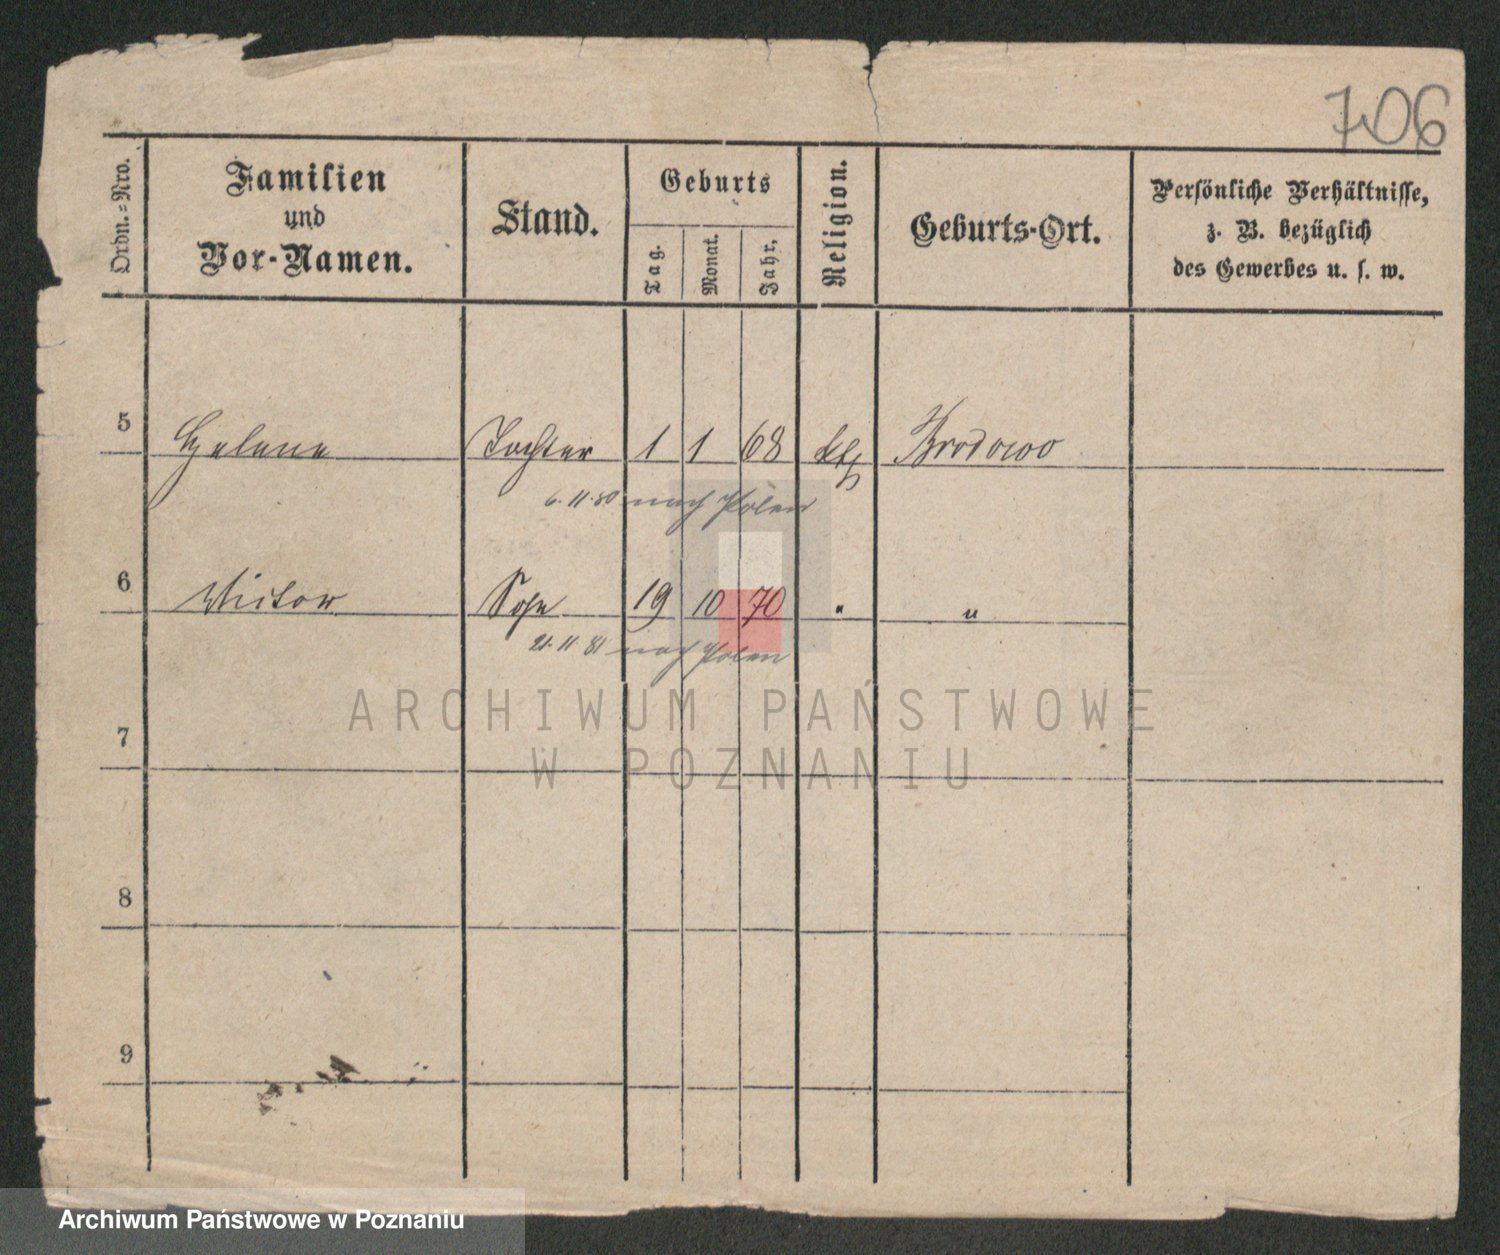 706
Ordn.-Nro.
Familien
und
Vor-Namen.
Stand.
Geburts
Tag.
Monat.
Jahr.
Religion.
Geburts-Ort.
Persönliche Verhältnisse,
z. B. bezüglich
des Gewerbes u. s. w.
5 Helene Tochter 1 1 68 kth Brodowo
6. 11. 80 nach Polen
6 Victor Sohn 19 10 70 " "
21. 11. 81 nach Polen
ARCHIWUM PAŃSTWOWE
7
W POZNANIU
8
9
Archiwum Państwowe w Poznaniu